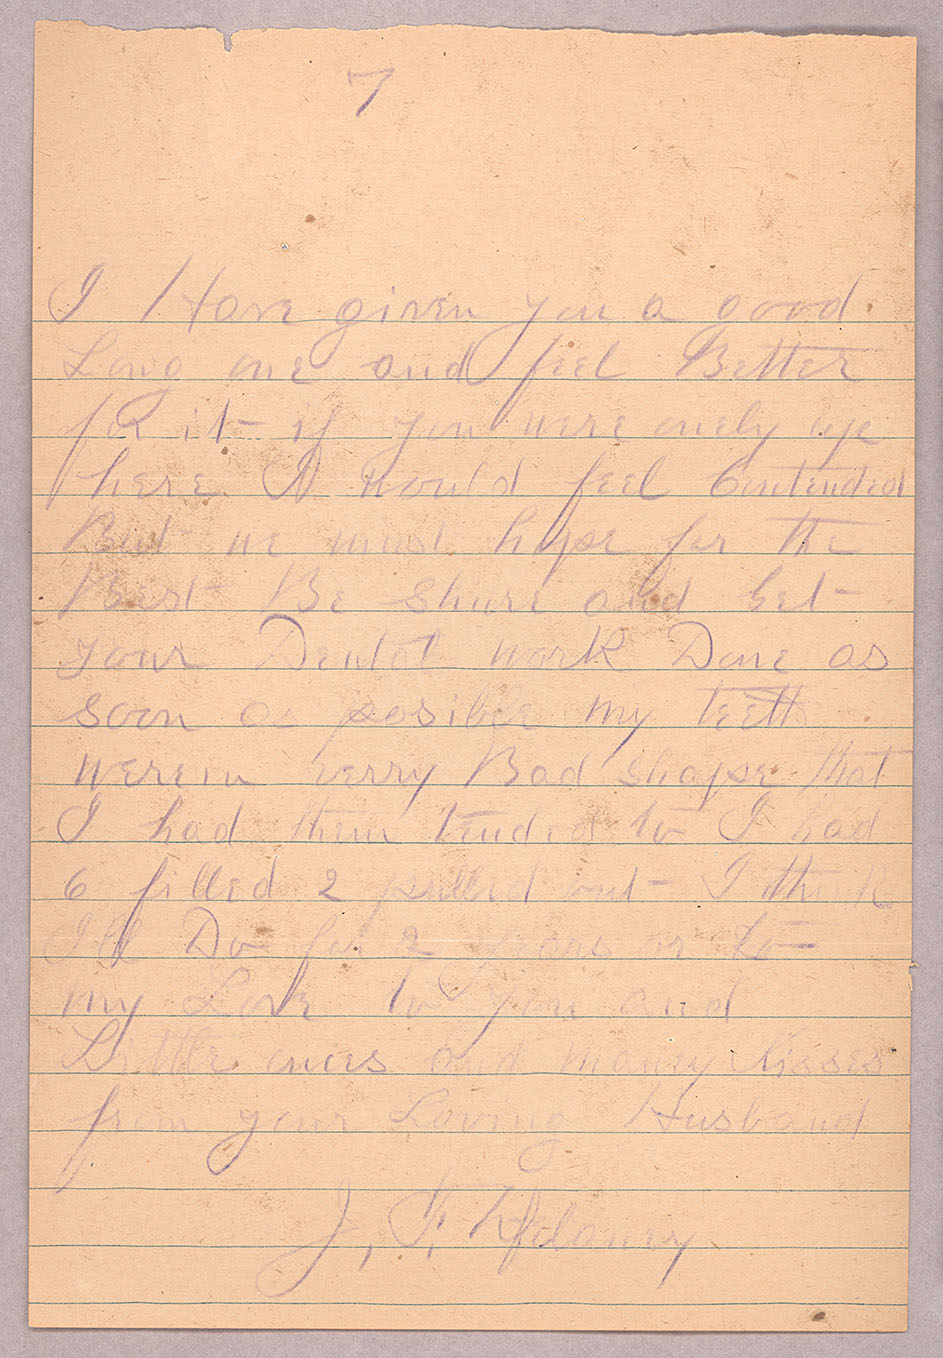 7
I Have given you a good
Long one and feel Better
for it if you were onely up
here I would feel Contended
But we must hope for the
Best Be shure and get
your Dentol work Done as
soon as posible my teeth
were in verry Bad shape that
I had them tended to I had
6 filled 2 pulled out I think
I'll Do for 2 years or to
my Love to you and
Little ones and maney kisses
from your Loving Husband
J. F. Delaney.